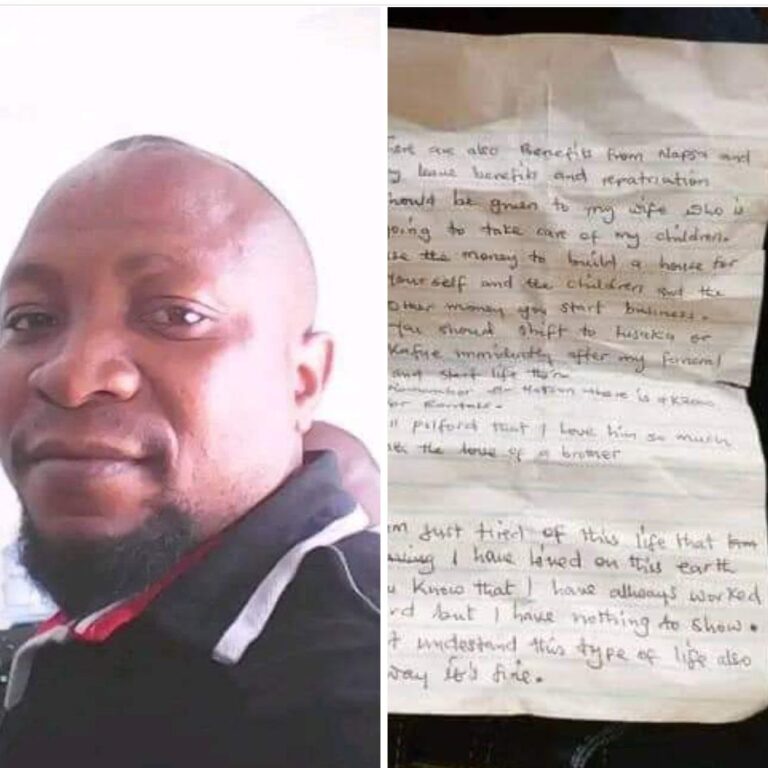 are also Benefits from Napsa and
leave benefits and repatriation
should be given to my wife who is
going to take care of my children.
use the money to build a house for
yourself and the children and the
other money you start business.
You should shift to Lusaka or
Kafue immidiately after my funeral
and start life there
Remember there is a K
for
pulford that I love him so much
the love of a brother
Just tired of this life that
I have lived on this earth
know that I have always worked
but I have nothing to show.
undestand this type of life also
way it's fine.